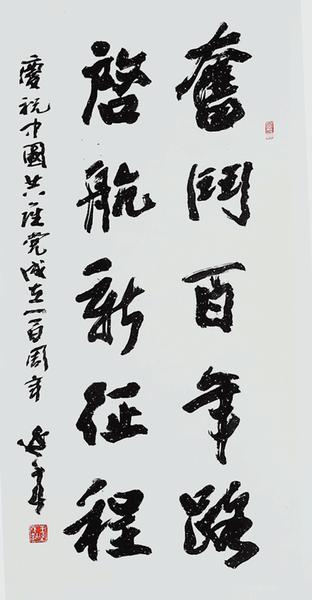 奮鬥百年路
啓航新征程
慶祝中國共產党成立一百周年